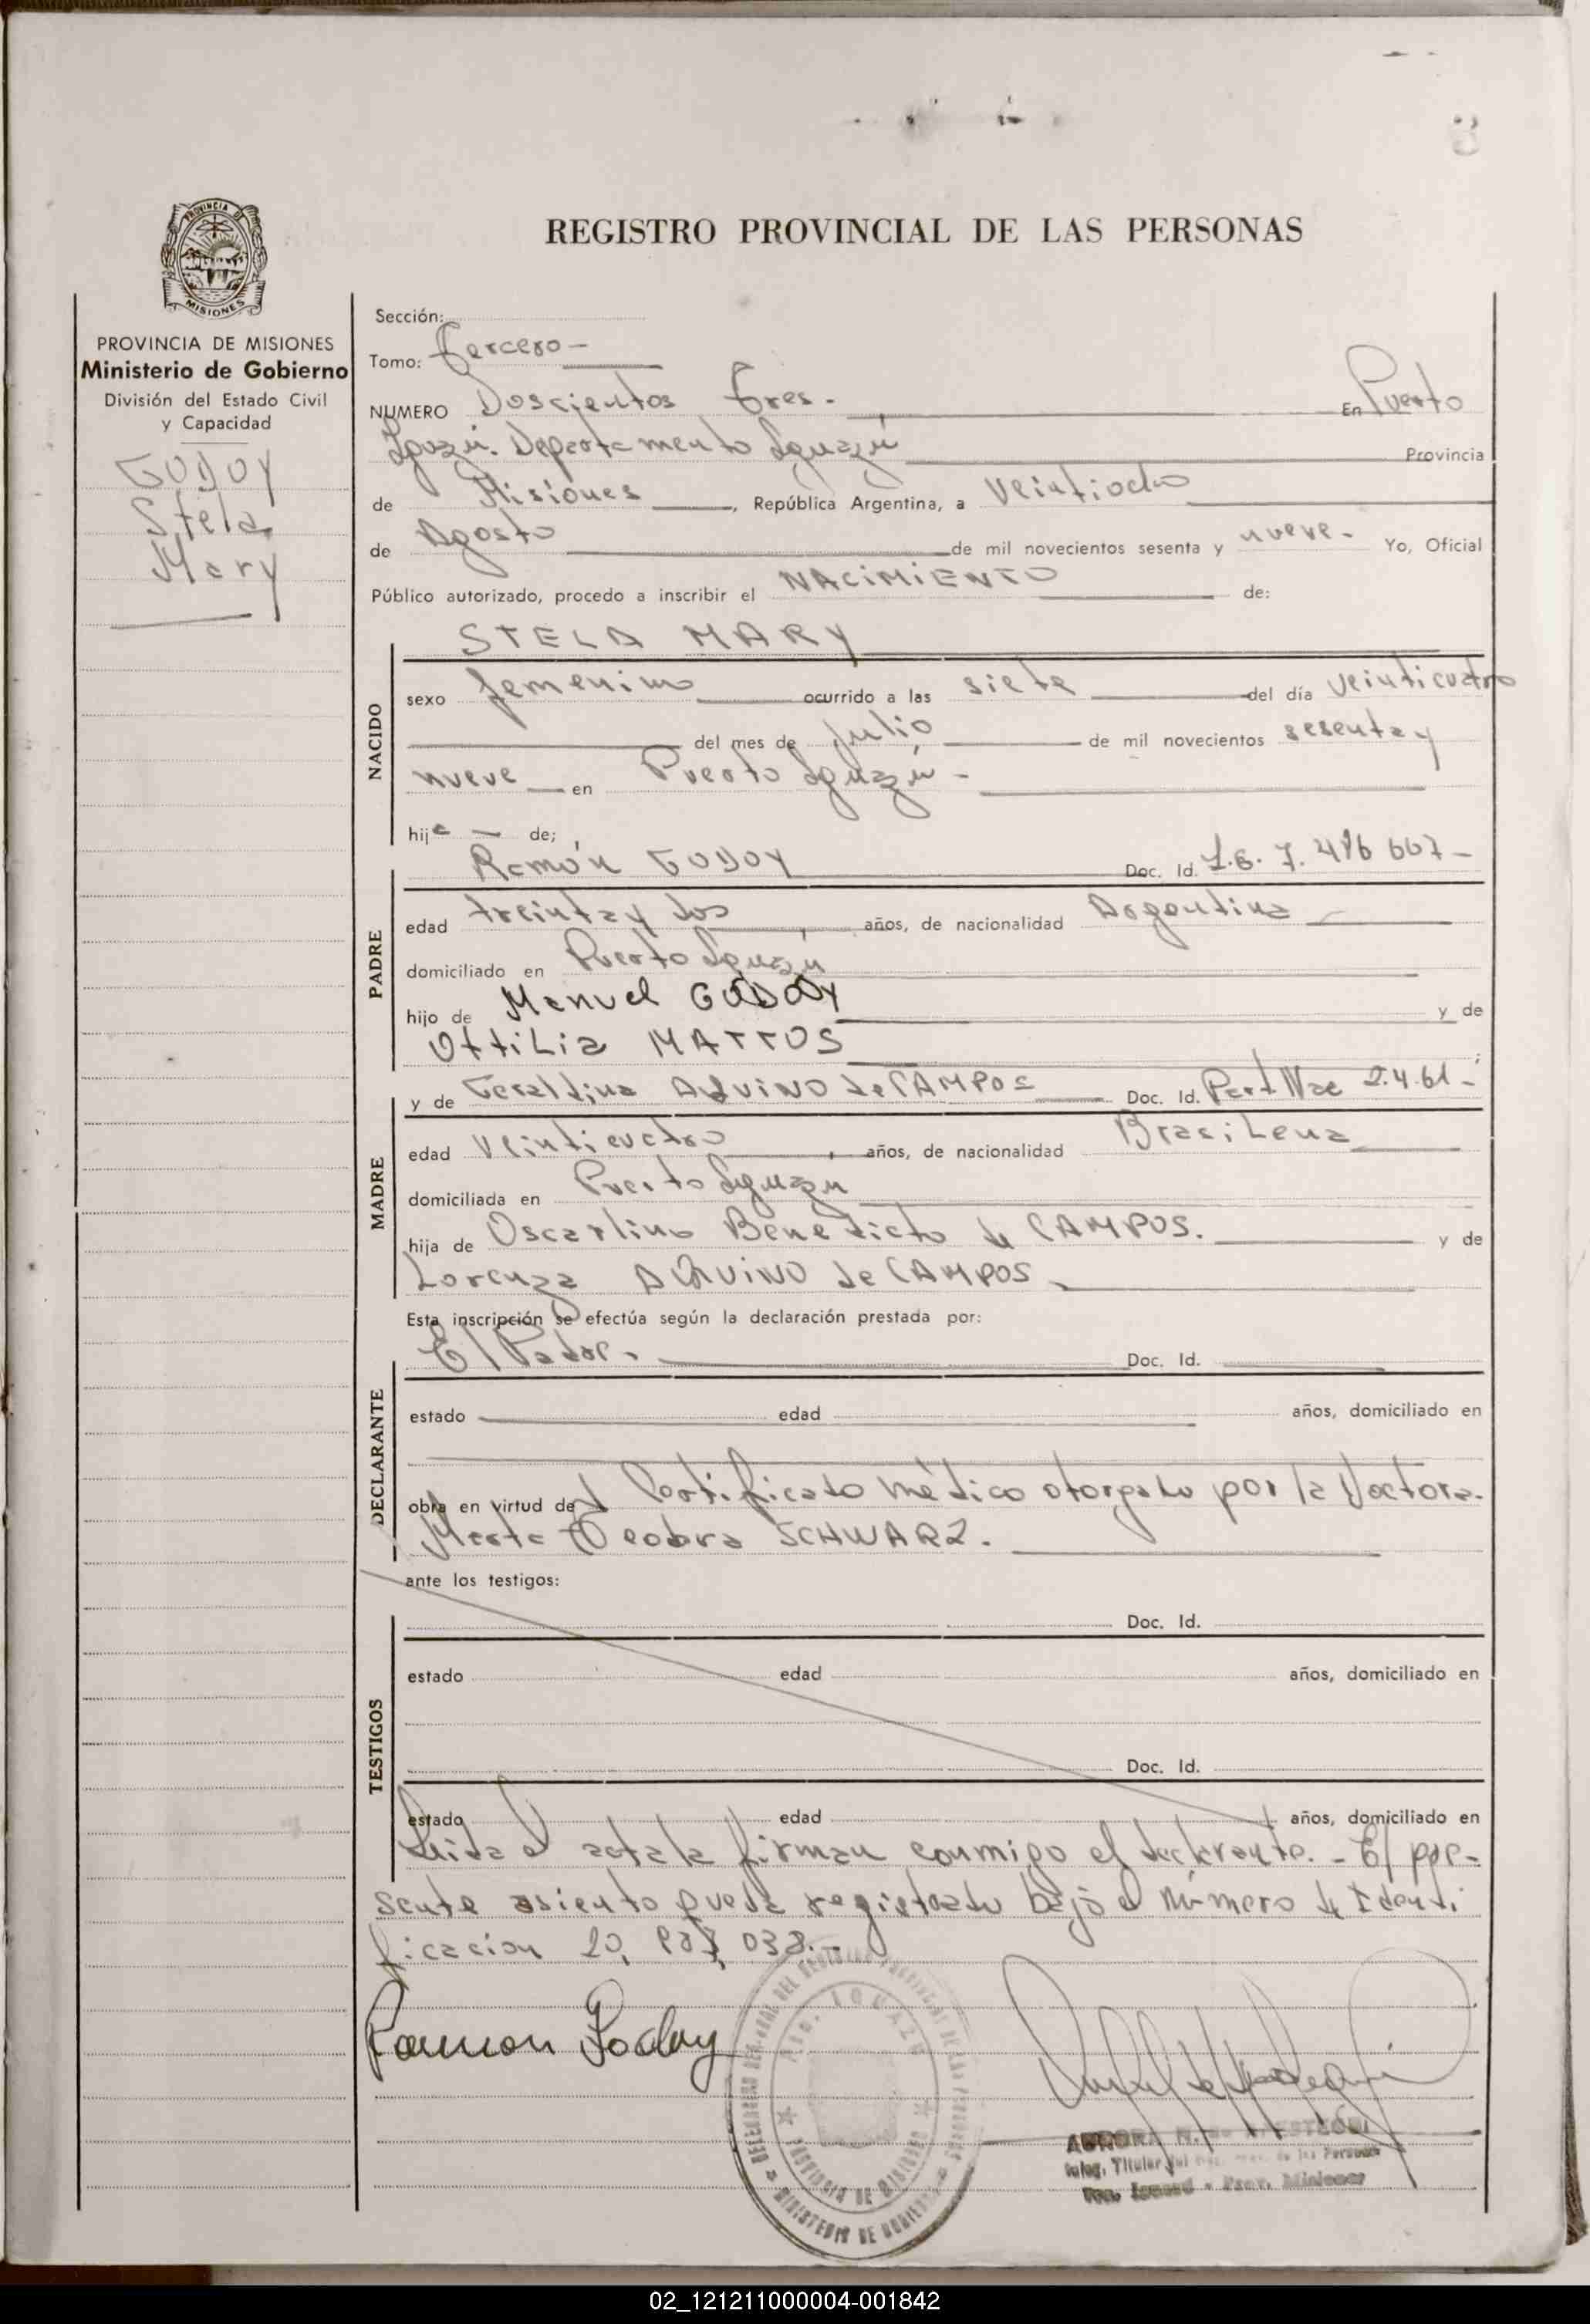 REGISTRO PROVINCIAL DE LAS PERSONAS
PROVINCIA DE
MISIONES
PROVINCIA DE MISIONES
Ministerio de Gobierno
División del Estado Civil
y Capacidad
GODOY
Stela
Mary
Sección:
Tomo: Tercero -
NUMERO Doscientos Tres. - En Puerto
Iguazú. Departamento Iguazú Provincia
de Misiones, República Argentina, a veintiocho
de Agosto de mil novecientos sesenta y nueve - Yo, Oficial
Público autorizado, procedo a inscribir el NACIMIENTO de:
NACIDO
STELA MARY
sexo femenino ocurrido a las siete del día veinticuatro
del mes de Julio de mil novecientos sesenta y
nueve en Puerto Iguazú -
hija de;
PADRE
Ramón GODOY Doc. Id.
edad treinta y dos, años, de nacionalidad Argentina
domiciliado en Puerto Iguazú
hijo de Manuel GODOY y de
Ottilia MATTOS ;
MADRE
y de Geraldina AQUINO de CAMPOS Doc. Id. Part Nac 2.4.61 -
edad veinticuatro, años, de nacionalidad Brasilena
domiciliada en Puerto Iguazu
hija de Oscarlino Benedicto de CAMPOS. y de
Lorenza AQUINO de CAMPOS
Esta inscripción se efectúa según la declaración prestada por:
DECLARANTE
El Padre. Doc. Id.
estado edad años, domiciliado en
obra en virtud del Certificado médico otorgado por la Doctora.
Marta Teodora SCHWARZ.
ante los testigos:
TESTIGOS
Doc. Id.
estado edad años, domiciliado en
Doc. Id.
estado edad años, domiciliado en
Leida el acta la firman conmigo el declarante. - El pre-
sente asiento queda registrado bajo el número de Identi
ficacion 20,
Ramon Godoy
PROVINCIA DE MISIONES
MINISTERIO DE GOBIERNO
AURORA
Titular
Prov. Misiones
02_121211000004-001842